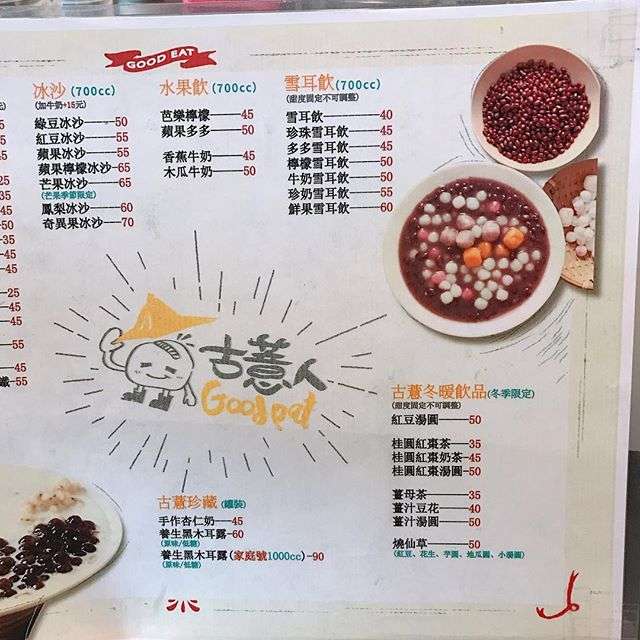 GOOD EAT
冰沙(700cc)
(加牛奶+15元)
綠豆冰沙——50
紅豆冰沙——55
蘋果冰沙——55
蘋果檸檬冰沙-65
芒果冰沙——65
(芒果季節限定)
鳳梨冰沙——60
奇異果冰沙——70
水果飲(700cc)
芭樂檸檬——45
蘋果多多——50
香蕉牛奶——50
木瓜牛奶——50
雪耳飲(700cc)
(甜度固定不可調整)
雪耳飲——40
珍珠雪耳飲——45
多多雪耳飲——45
檸檬雪耳飲——50
牛奶雪耳飲——50
珍奶雪耳飲——55
鮮果雪耳飲——60
古薏人
Good eat
古薏冬暖飲品(冬季限定)
(甜度固定不可調整)
紅豆湯圓——50
桂圓紅棗茶——35
桂圓紅棗奶茶——45
桂圓紅棗湯圓-50
薑母茶——35
薑汁豆花——40
薑汁湯圓——50
燒仙草——50
(紅豆、花生、芋圓、地瓜圓、小湯圓)
古薏珍藏(罐裝)
手作杏仁奶——45
養生黑木耳露-60
(原味/低糖)
養生黑木耳露(家庭號1000cc)-90
(原味/低糖)